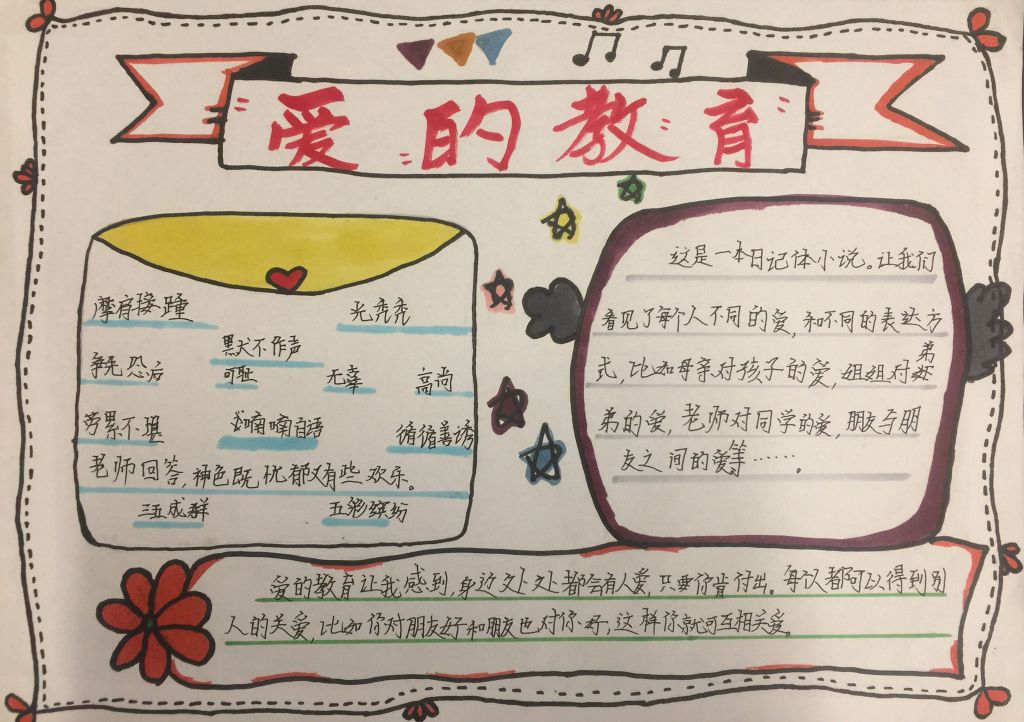 爱的教育
摩肩接踵 光秃秃
争先恐后 默不作声
可耻 无辜 高尚
劳累不堪 喃喃自语 循循善诱
老师回答,神色既忧郁又有些欢乐。
三五成群 五彩缤纷
这是一本日记体小说。让我们
看见了每个人不同的爱,和不同的表达方
式,比如母亲对孩子的爱,姐姐对弟
弟的爱,老师对同学的爱,朋友与朋
友之间的爱等……。
爱的教育让我感到,身边处处都会有人爱,只要你肯付出。每个人都可以得到别
人的关爱,比如你对朋友好和朋友也对你好,这样你就可互相关爱。